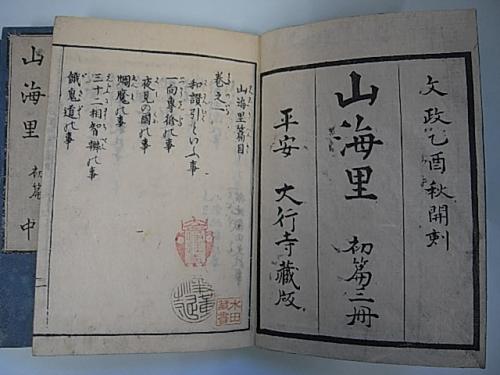 文政乙酉秋開刻
山海里 初篇三冊
平安 大行寺藏版
山海里篇目
巻之一
和讃引といふ事
一向專修の事
夜見の國の事
の事
三十二相智辨の事
餓鬼道の事
水田藏書
山海里 初篇 中